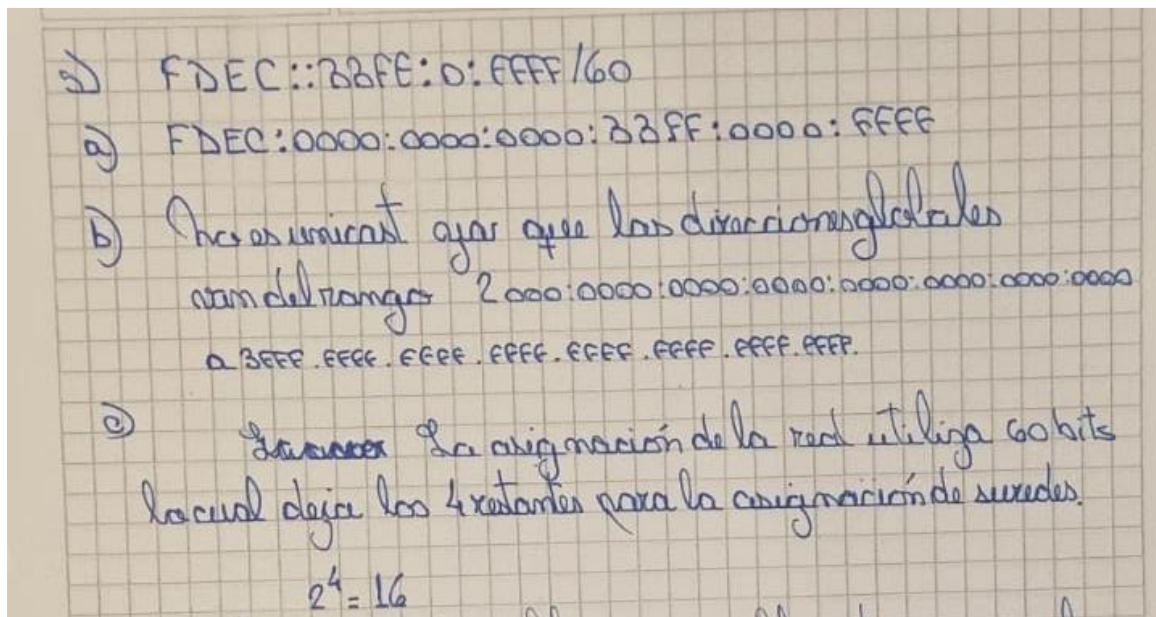 FDEC::BBFF:0:FFFF/60
a) FDEC:0000:0000:0000:BBFF:0000:FFFF
b) unicast que las direcciones globales
van del rango 2000:0000:0000:0000:0000:0000:0000:0000
a 3FFF.FFFF.FFFF.FFFF.FFFF.FFFF.FFFF.FFFF.
c) La asignación de la red utiliza 60 bits
lo cual deja los 4 restantes para la asignación de subredes.
2⁴ = 16